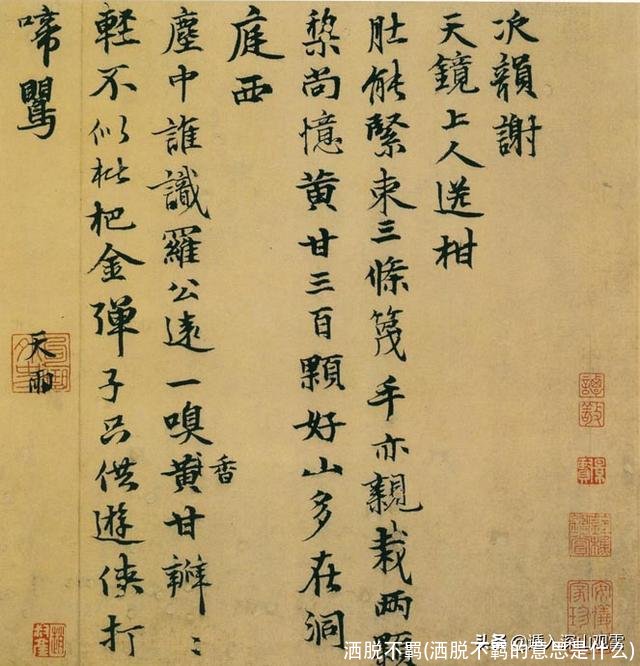 次韻謝
天鏡上人送柑
肚能緊束三條篾手亦親栽兩顆
棃尚憶黄甘三百顆好山多在洞
庭西
塵中誰識羅公遠一嗅黄甘瓣〻
香
輕不似枇杷金彈子只供遊俠打
啼鶯
天雨
头条 @遁入深山观云
洒脱不羁(洒脱不羁的意思是什么)